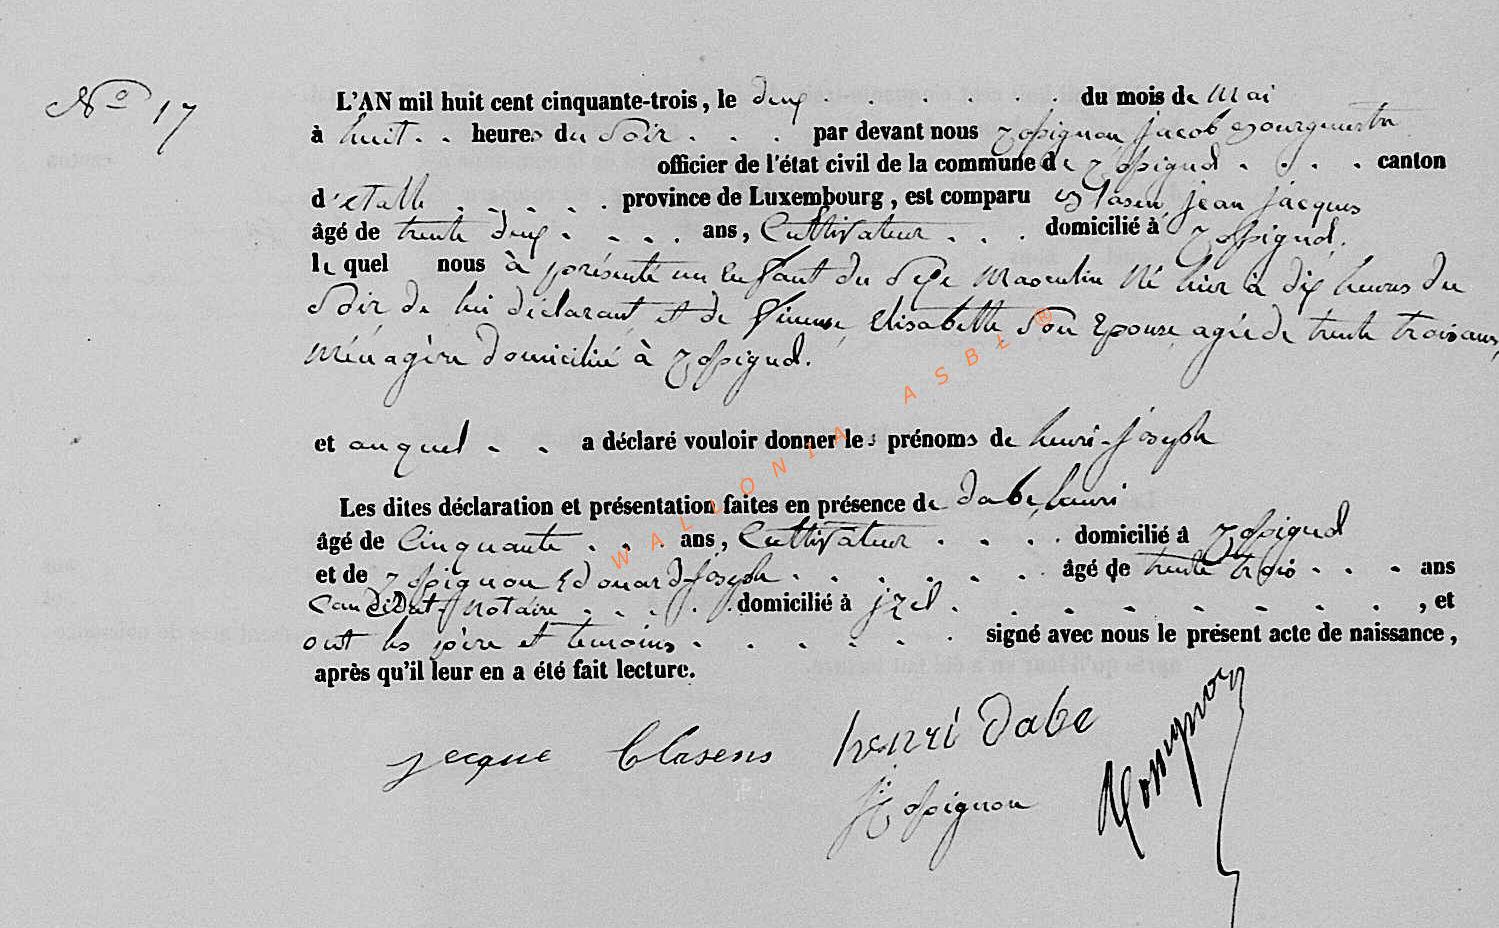 No 17
L'AN mil huit cent cinquante-trois, le deux . . . . . . du mois de Mai
à huit . . heures du Soir . . . par devant nous Rossignon jacob Bourgmestre
officier de l'état civil de la commune de Rossignol . . . . canton
d'Etalle . . . . . province de Luxembourg, est comparu Clasen jean jacques
âgé de trente deux . . . . ans, Cultivateur . . . domicilié à Rossignol.
le quel nous à présenté un Enfant du Sexe Masculin Né hier à dix heures du
Soir de lui déclarant et de Elisabette Son Epouse agée de trente trois ans,
Ménagère domiciliée à Rossignol.
et auquel . . a déclaré vouloir donner les prénoms de henri-joseph
Les dites déclaration et présentation faites en présence de dabe henri
âgé de Cinquante . . . ans, Cultivateur . . . . domicilié à Rossignol
et de Rossignon Edouard joseph . . . . . . . âgé de trente trois . . . ans
Candidat Notaire . . . . . domicilié à jzel . . . . . . . . . , et
ont les père et temoins . . . . . . signé avec nous le présent acte de naissance,
après qu'il leur en a été fait lecture.
jacque Clasens henri Dabe Rossignon
Rossignon
WALLONIA ASBL ®